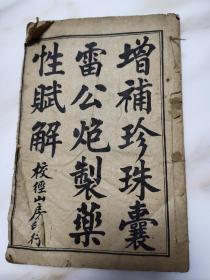 增補珍珠囊
雷公炮製藥
性賦解
校經山房印行